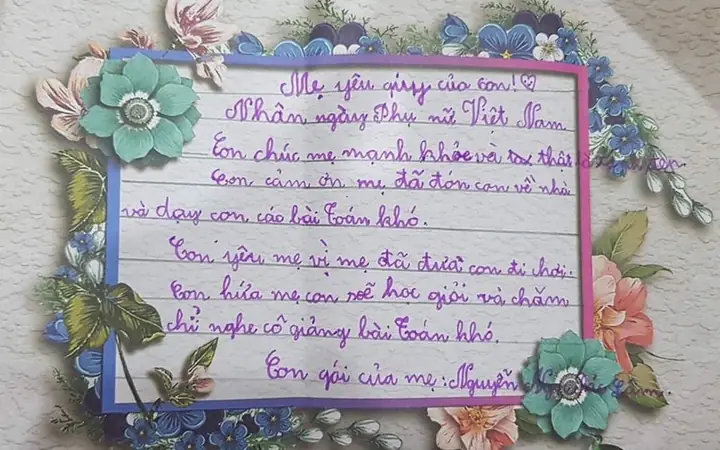 Mẹ yêu qúy của con! ♡
Nhân ngày Phụ nữ Việt Nam
Con chúc mẹ mạnh khỏe và thật
Con cảm ơn mẹ đã đón con về nhà
và dạy con cáo bài Toán khó.
Con yêu mẹ vì mẹ đã đưa con đi chơi.
Con hứa mẹ con sẽ học giỏi và chăm
chỉ nghe cô giảng bài Toán khó.
Con gái của mẹ: Nguyễn